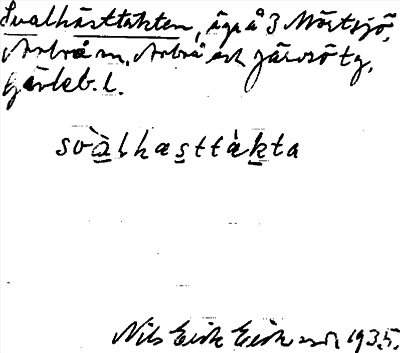 Svalhästtäkten, äga å 3 Mörtsjö,
Arbrå sn, Arbrå och Järvsö tg,
Gävleb. l.
svàlhæsttàkta
Nils Erik Eriksson 1935.